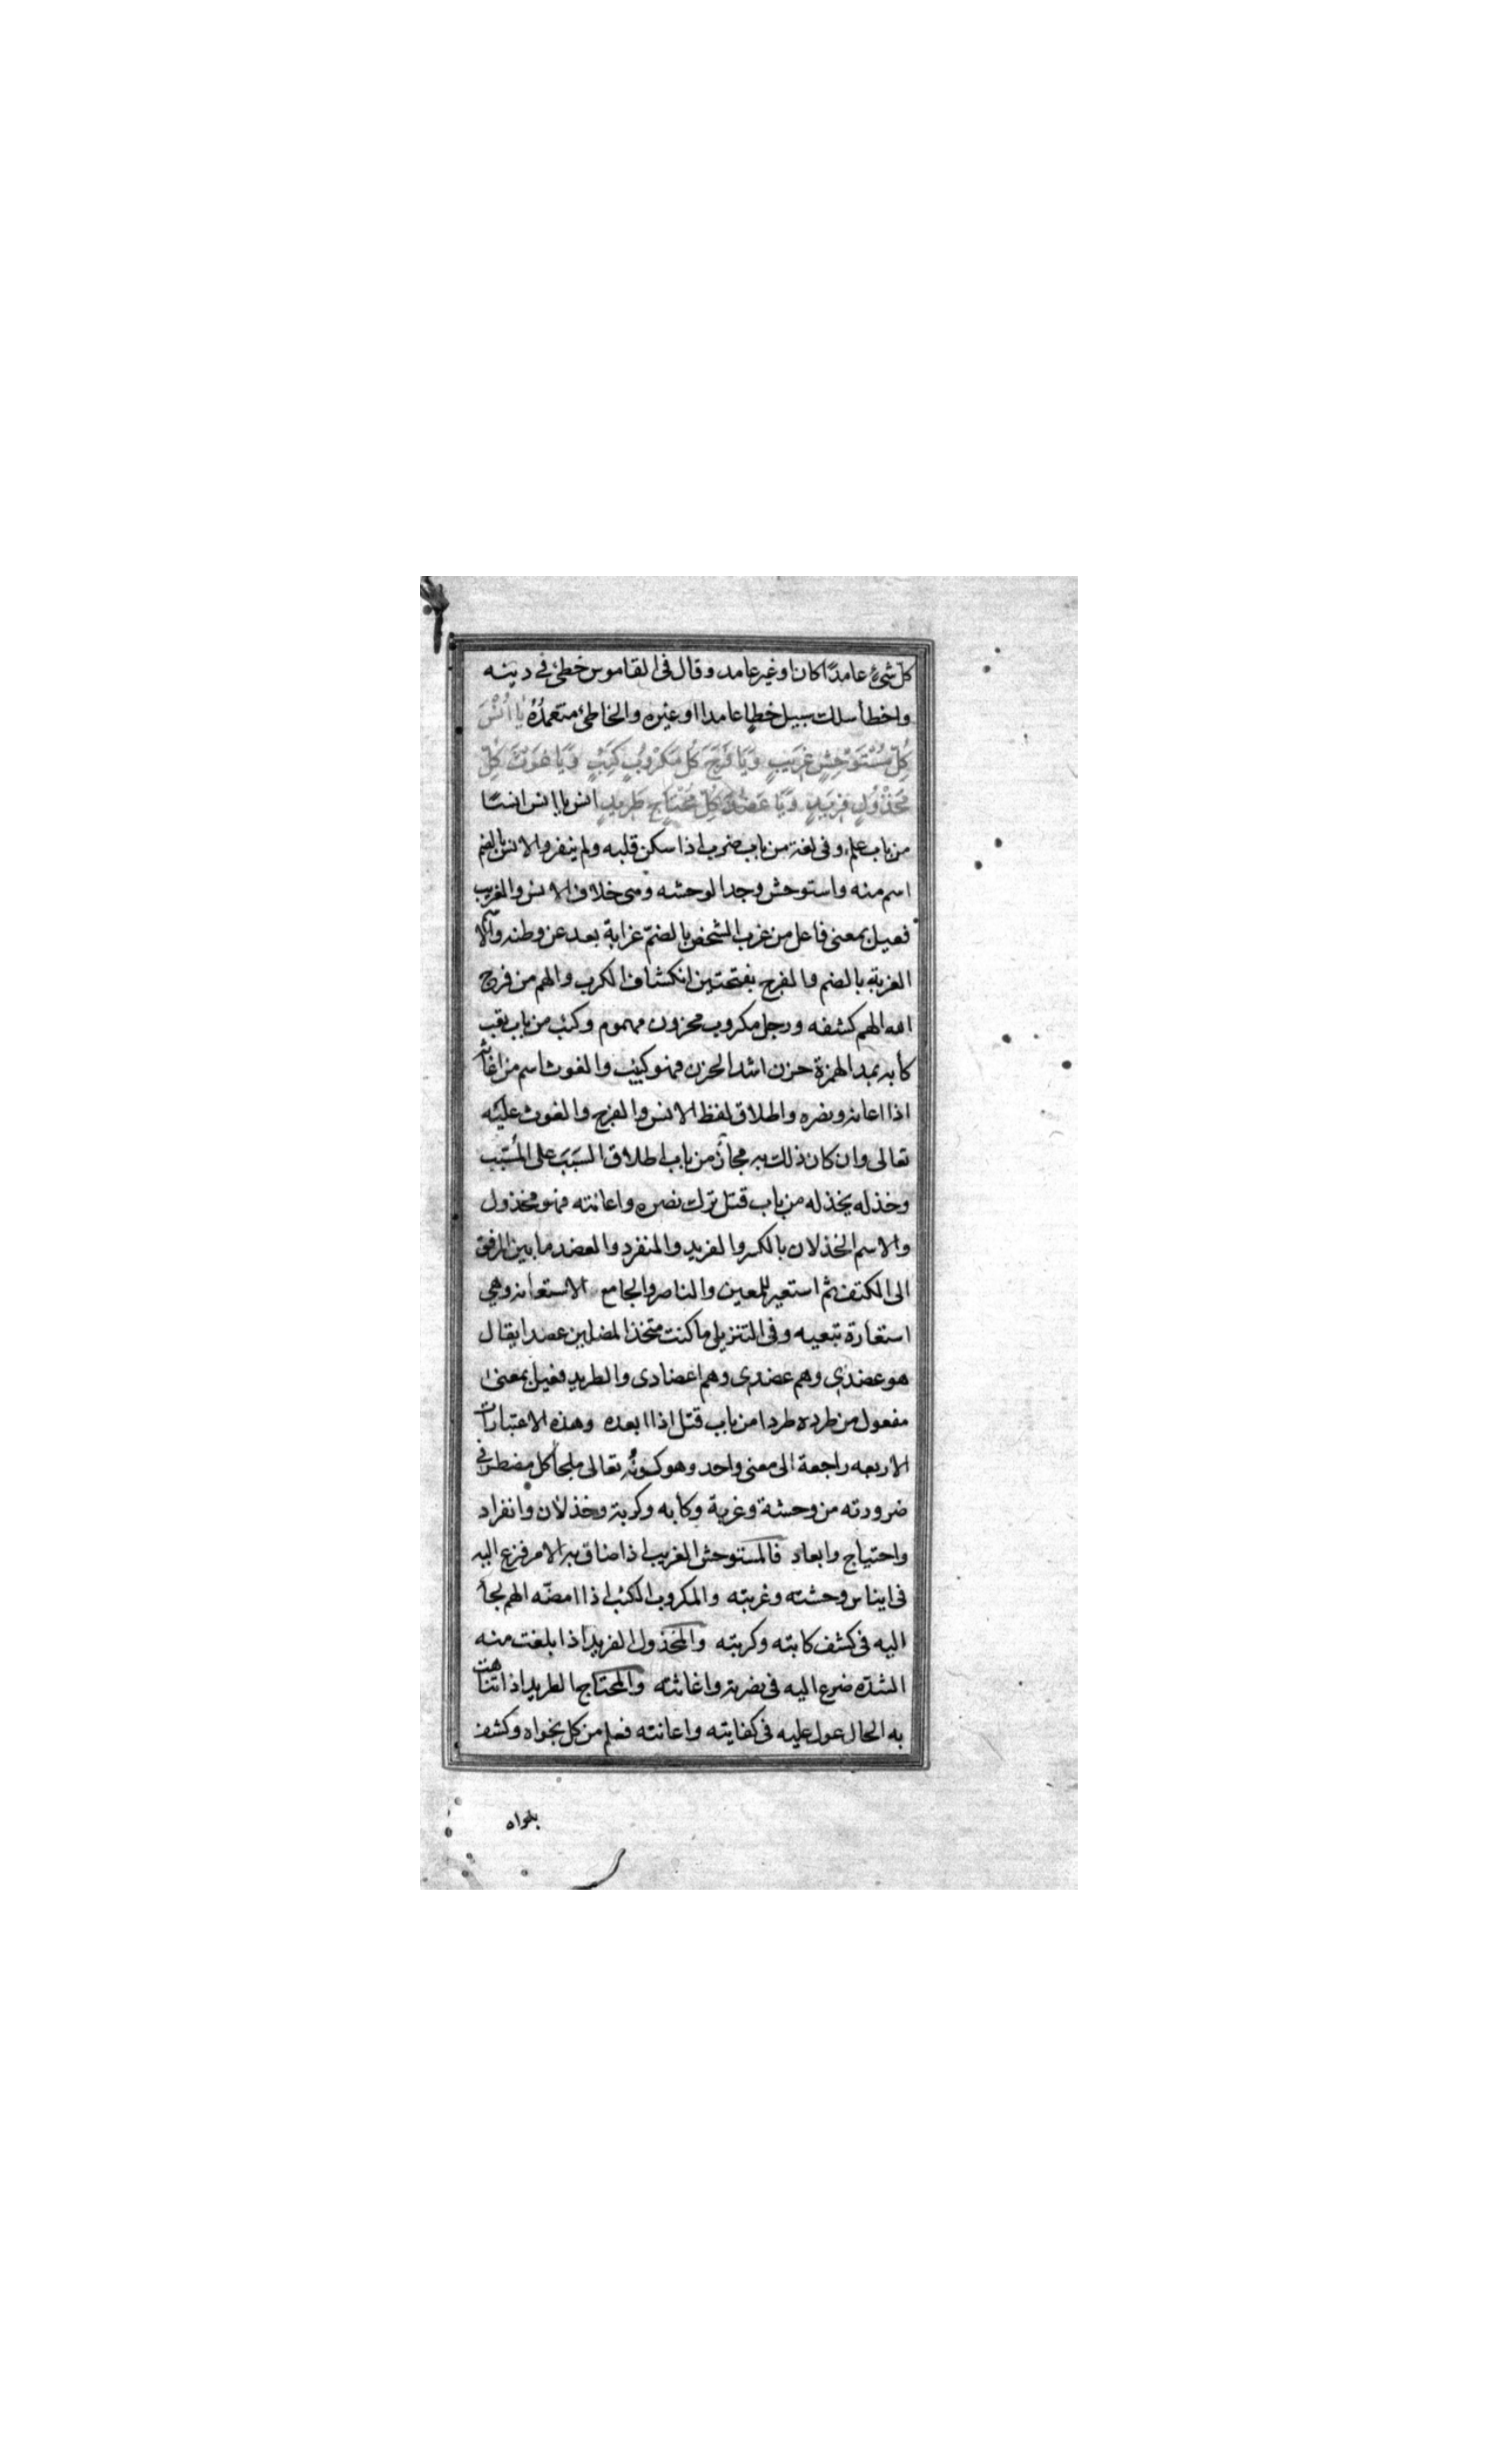 كل شئ عامدًا كان او غير عامد وقال فى القاموس خطئ فى دينه
واخطأ سلك سبيل خطا عامدا او غيره والخاطئ متعمدُهُ يَا اُنْسَ
كُلِّ مُسْتَوْحِشٍ غَرِيبٍ وَيَا فَرَجَ كُلِّ مَكْرُوبٍ كَئِبٍ وَيَا غَوْثَ كُلِّ
مَخْذُولٍ فَرِيدٍ وَيَا عَضُدَ كُلِّ مُحْتَاجٍ طَرِيدٍ انس يا انس انسًا
من باب علم وفى لغة من باب ضرب اذا سكن قلبه ولم ينفر والانس بالضم
اسم منه واستوحش وجد الوحشه وهى خلاف الانس والغريب
فعيل بمعنى فاعل من غرب الشخص بالضمّ غرابة بعد عن وطنه والاسم
الغربة بالضم والفرج بفتحتين انكشاف الكرب والهم من فرج
الله الهم كشفه ورجل مكروب محزون مهموم وكئب من باب تعب
كأبه بمد الهمزة حزن اشد الحزن فهو كئيب والغوث اسم من اغاثه
اذا اعانه ونصره واطلاق لفظ الانس والفرج والغوث عليه
تعالى وان كان ذلك به مجازٌ من باب اطلاق السَبَبَ على المُسَبَّب
وخذله يخذله من باب قتل ترك نصره واعانته فهو مخذول
والاسم الخذلان بالكسر والفريد والمنفرد والعضد ما بين المرفق
الى الكتف ثم استعير للمعين والناصر والجامع الاستعانه وهى
استعارة تبعيه وفى التنزيل ما كنت متخذ المضلين عضدا يقال
هو عضدى وهم عضدى وهم اعضادى والطريد فعيل بمعنى
مفعول من طرده طردا من باب قتل اذا ابعده وهذه الاعتبارات
الاربعه راجعة الى معنى واحد وهو كونُه تعالى ملجأ كل مضطر فى
ضرورته من وحشة وغربة وكأبه وكربة وخذلان وانفراد
واحتياج وابعاد فالمستوحش الغريب اذا ضاق به الامر فزع اليه
فى ايناس وحشته وغربته والمكروب الكئب اذا امضّه الهم لجأ
اليه فى كشف كابته وكربته والمخذول الفريد اذا بلغت منه
الشدّه ضرع اليه فى نصرته واغاثته والمحتاج الطريد اذا تناهت
به الحال عول عليه فى كفايته واعانته فعلم من كل نجواه وكشف
بلواه